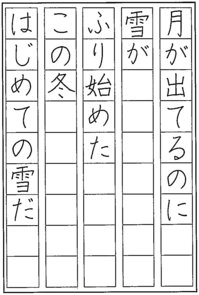 月が出てるのに
雪が
ふり始めた
この冬
はじめての雪だ